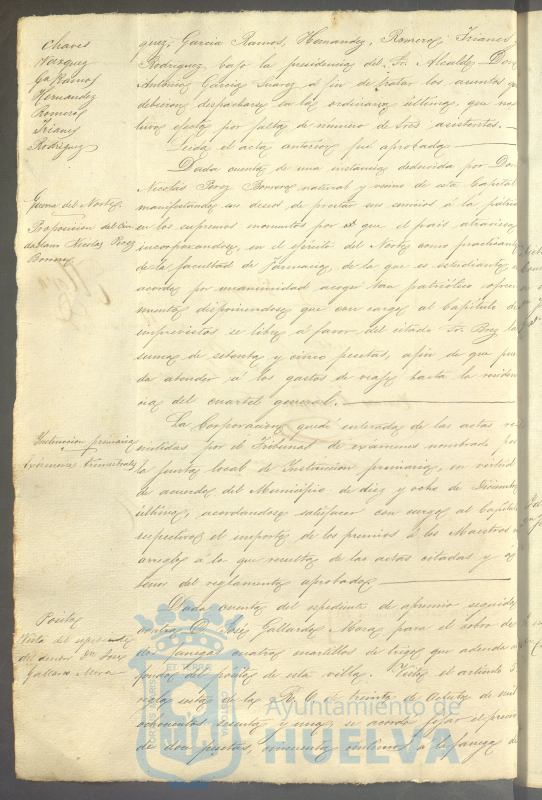 Chaves
Vazquez
Ga Ramos
Hernandez
Romero
Triano
Rodriguez
quez, Garcia Ramos, Hernandez, Romero, Triano
Rodriguez, bajo la presidencia del Sr. Alcalde Don
Antonio Garcia Suarez al fin de tratar los asuntos que
debieron despacharse en la ordinaria última, que no
tuvo efecto por falta de número de Sres asistentes.
Leida el acta anterior fué aprobada
Guerra del Norte
Proposicion del Ciu
dadano Nicolas Perez
Dada cuenta de una instancia deducida por Don
Nicolas Perez natural y vecino de esta Capital
manifestando su deseo de prestar sus servicios á la patria
en los supremos momentos por que el pais atraviesa
incorporandose, en el ejército del Norte como practicante
de la facultad de Farmacia, de la que es estudiante, se
acordó por unanimidad acoger tan patriótico ofreci
miento disponiendose que con cargo al Capitulo de
imprevistos se libre á favor del citado Sr. Perez la
suma de setenta y cinco pesetas, afin de que pue
da atender á los gastos de viaje hasta la residen
cia del cuartel general.
Instruccion primaria
Exámenes trimestrales
La Corporacion quedó enterada de las actas re
mitidas por el Tribunal de exámenes nombrado por
la junta local de Instruccion primaria, en virtud
de acuerdo del Municipio de diez y ocho de Diciembre
último, acordandose satisfacer con cargo al Capitulo
respectivo el importe de los premios á los Maestros
arreglo á lo que resulta de las actas citadas y
tenor del reglamento aprobado
Pósito
Vista del espediente
del deudor Dn José
Gallardo Mora
Dada cuenta del espediente de apremio seguido
contra D. José Gallardo Mora para el cobro de
dos fanegas cuatro cuartillos de trigo que adeuda á
fondos del pósito de esta villa. Visto el artículo 5
regla esta de la R. O. de treinta de Octubre de mil
ochocientos sesenta y uno, se acordó fijar el precio
de doce pesetas, cincuenta centimos á la fanega de
Ayuntamiento de
HUELVA